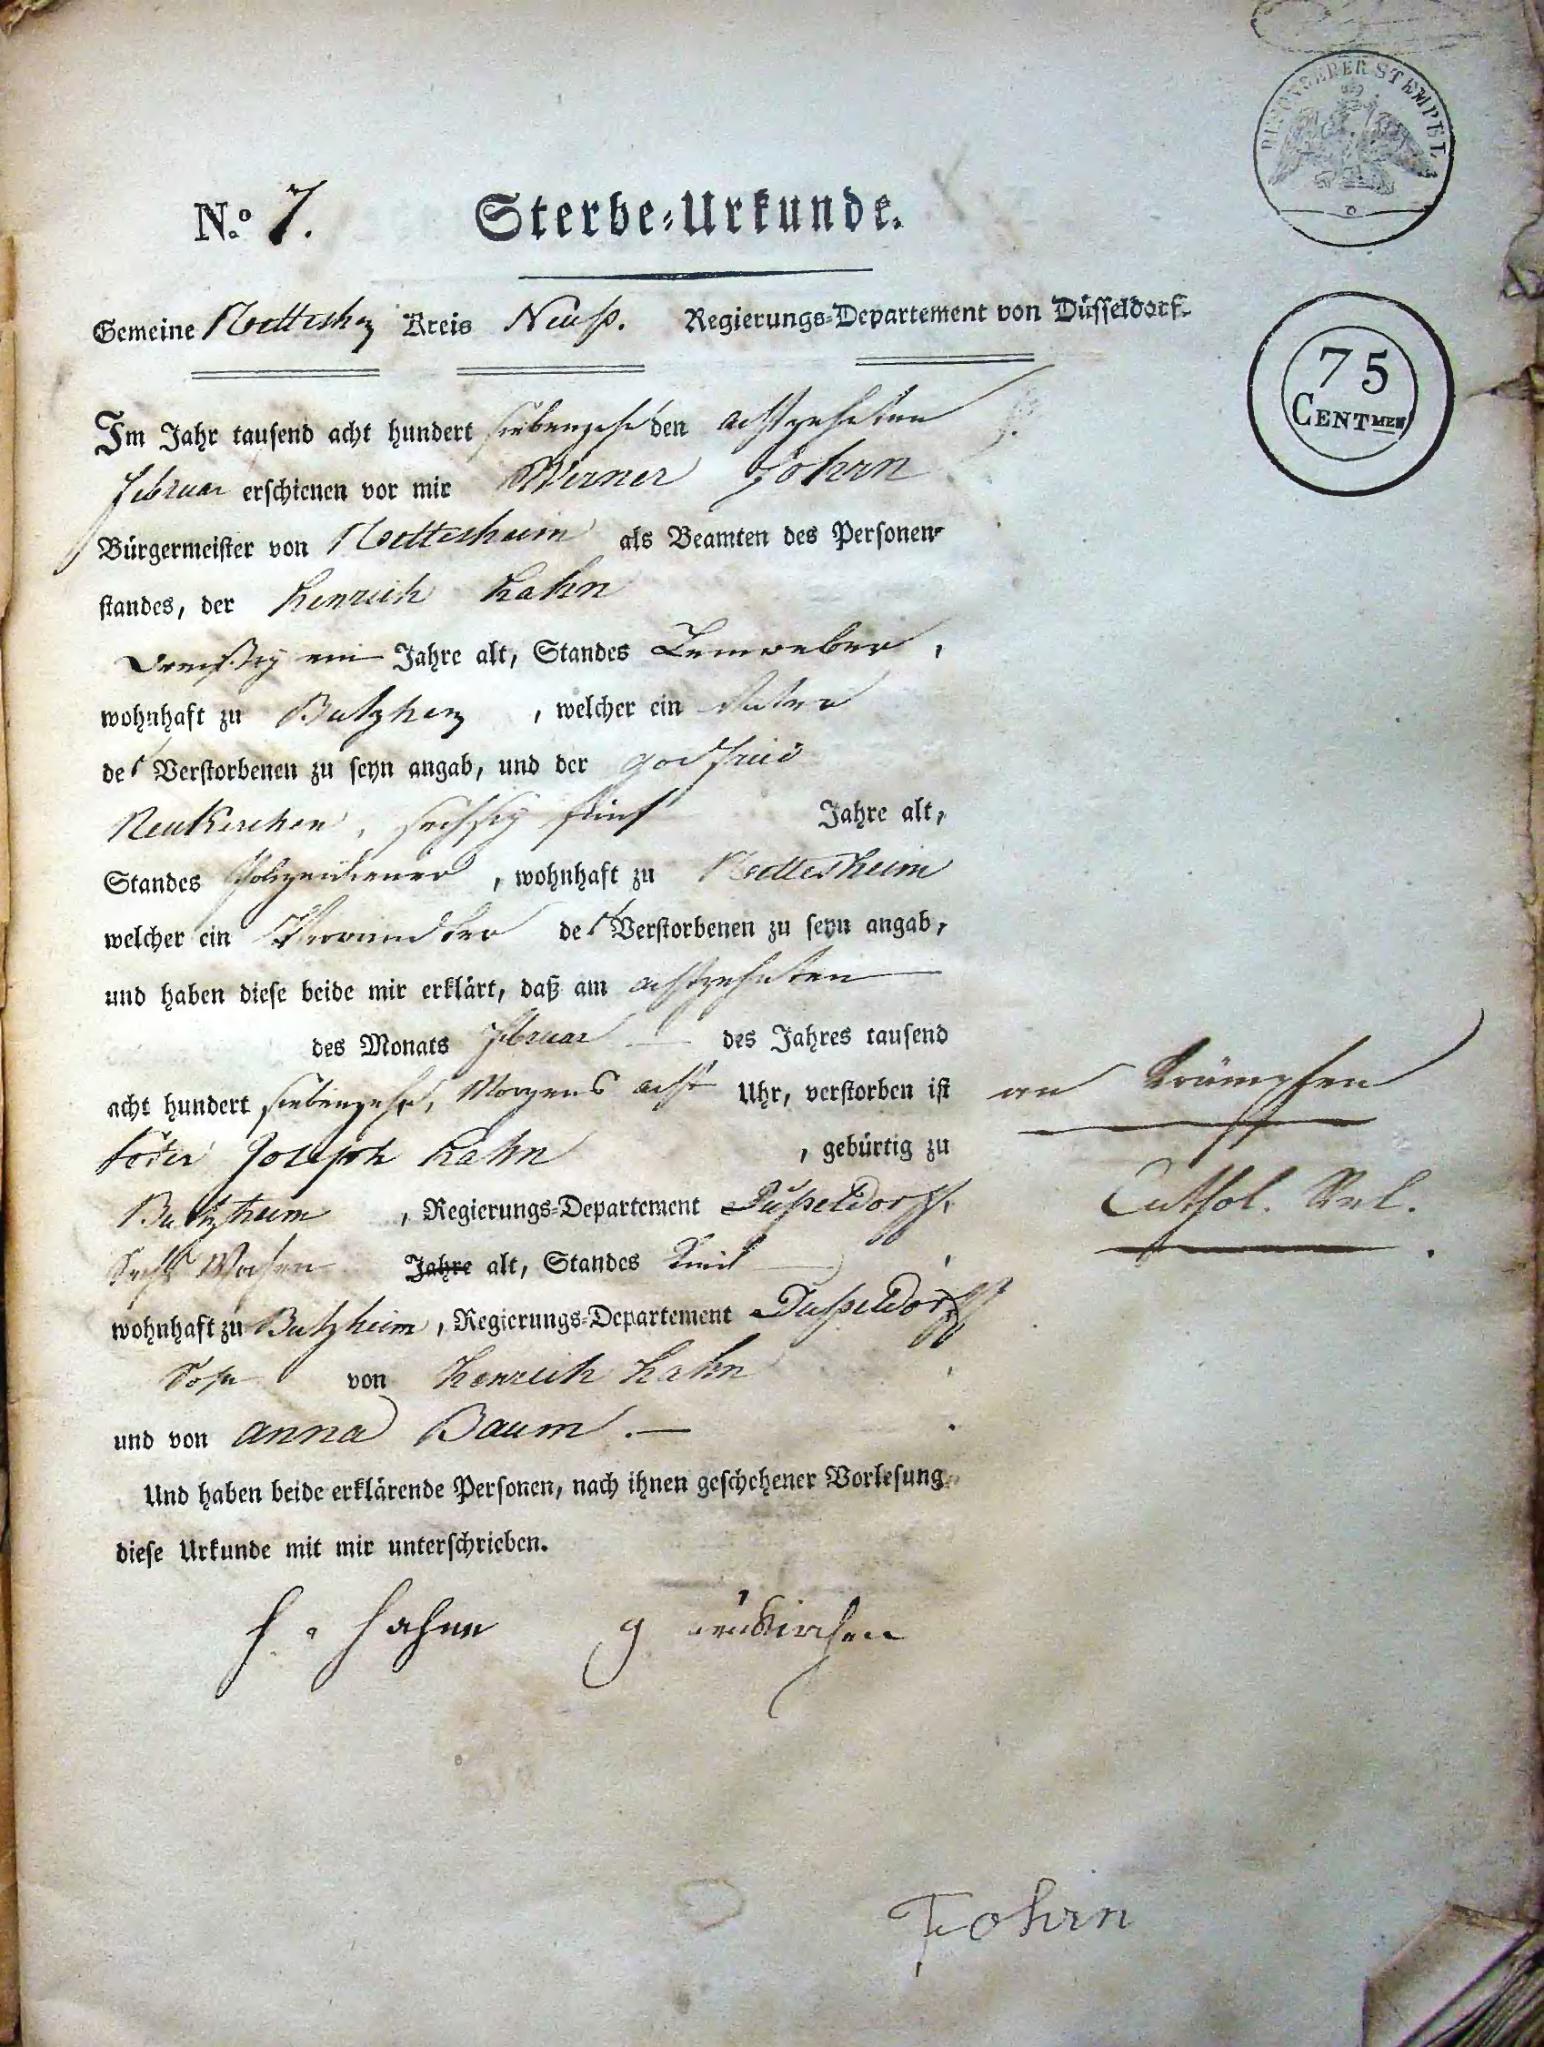 STEMPEL
No. 7. Sterbe-Urkunde.
Gemeine Kreis Neuß. Regierungs-Departement von Düsseldorf.
75
CENTMEN
Im Jahr tausend acht hundert siebenzehn den achtzehnten
Februar erschienen vor mir Werner Fohrn
Bürgermeister von Nettesheim als Beamten des Personen-
standes, der Henrich Hahn
Dreißig ein Jahre alt, Standes Leinweber,
wohnhaft zu , welcher ein Vater
des Verstorbenen zu seyn angab, und der Godfrid
Neukirchen, sechszig fünf Jahre alt,
Standes Polizeidiener, wohnhaft zu Nettesheim
welcher ein Verwandter des Verstorbenen zu seyn angab,
und haben diese beide mir erklärt, daß am achtzehnten
des Monats Februar des Jahres tausend
acht hundert siebenzehn, Morgens acht Uhr, verstorben ist an Krämpfen
Joseph Hahn, gebürtig zu
Butzheim, Regierungs-Departement Düßeldorff. Cathol. Rel.
Sechs Wochen Jahre alt, Standes Kind
wohnhaft zu Butzheim, Regierungs-Departement Dußeldorff
Sohn von Henrich Hahn
und von Anna Baum.
Und haben beide erklärende Personen, nach ihnen geschehener Vorlesung
diese Urkunde mit mir unterschrieben.
H. Hahn G
Fohrn